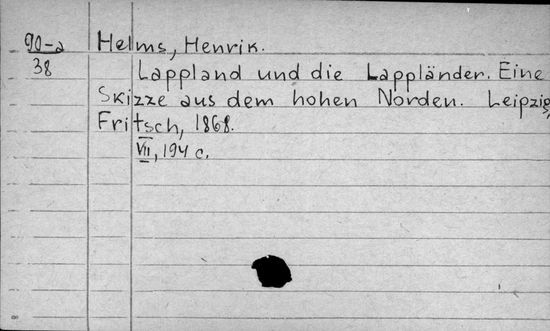 90-a Helms, Henrik.
38 Lappland und die Lappländer. Eine
Skizze aus dem hohen Norden. Leipzig,
Fritsch, 1868.
VII, 194 c.